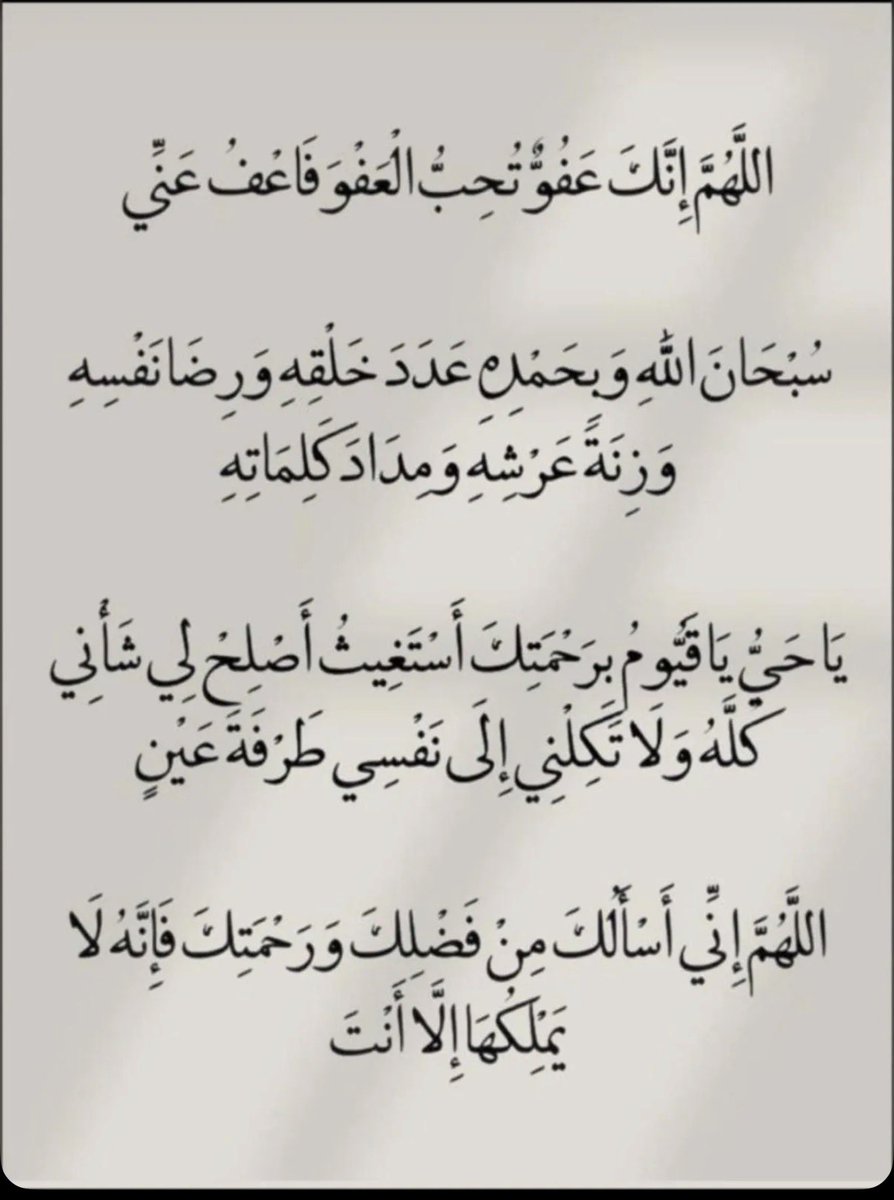 اللَّهُمَّ إِنَّكَ عَفُوٌّ تُحِبُّ الْعَفْوَ فَاعْفُ عَنِّي
سُبْحَانَ اللَّهِ وَبِحَمْدِهِ عَدَدَ خَلْقِهِ وَرِضَا نَفْسِهِ
وَزِنَةَ عَرْشِهِ وَمِدَادَ كَلِمَاتِهِ
يَا حَيُّ يَا قَيُّومُ بِرَحْمَتِكَ أَسْتَغِيثُ أَصْلِحْ لِي شَأْنِي
كُلَّهُ وَلَا تَكِلْنِي إِلَى نَفْسِي طَرْفَةَ عَيْنٍ
اللَّهُمَّ إِنِّي أَسْأَلُكَ مِنْ فَضْلِكَ وَرَحْمَتِكَ فَإِنَّهُ لَا
يَمْلِكُهَا إِلَّا أَنْتَ